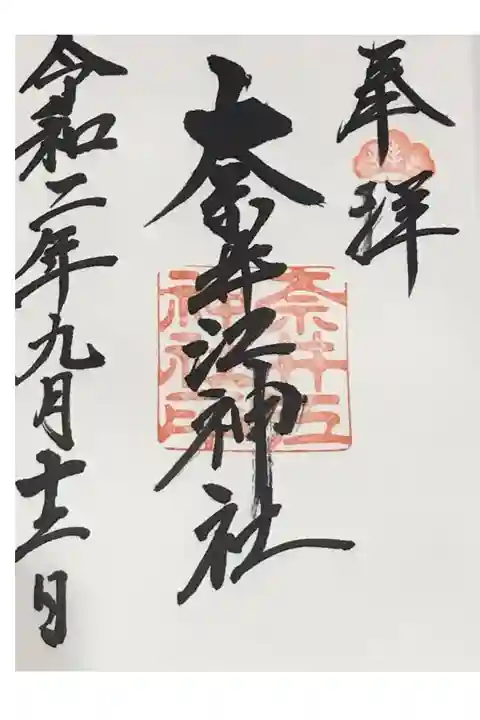 奉拝
奈井江神社
奈井江
神社印
令和二年九月十二日